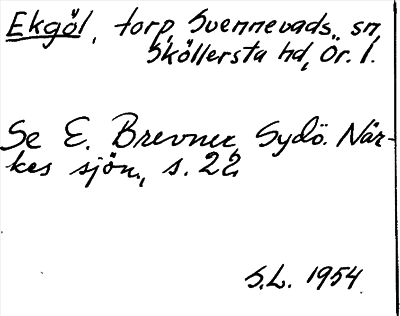 Ekgöl, torp, Svennevads sn,
Sköllersta hd, Ör. l.
Se E. Brevner, Sydö. När-
kes sjön., s. 22.
S.L. 1954